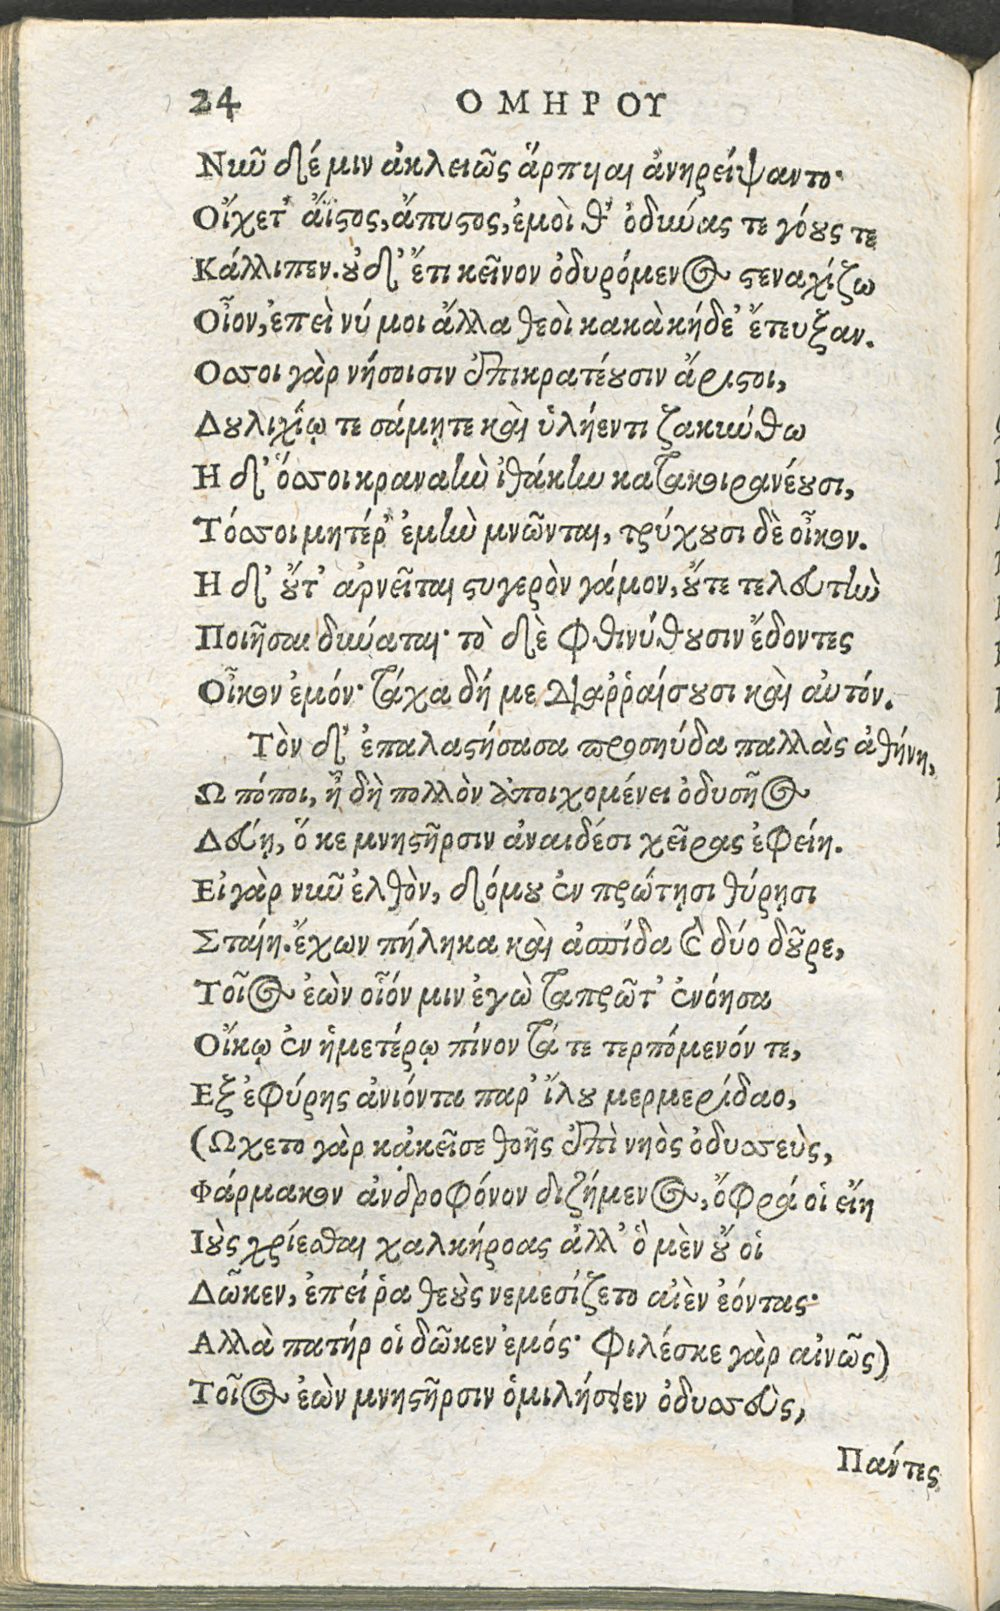 24 ΟΜΗΡΟΥ
Νιῦ δέ μιν ἀκλειῶς ἅρπυιαι ἀνηρείψαντο·
Οἴχετ' ἄϊστος, ἄπυστος, ἐμοὶ δ' ὀδιύας τε γόους τε
Κάλλιπεν. οὐδ' ἔτι κεῖνον ὀδυρόμενος στεναχίζω
Οἶον, ἐπεὶ νύ μοι ἄλλα θεοὶ κακὰ κήδε' ἔτευξαν.
Οσσοι γὰρ νήσοισιν ἐπικρατέουσιν ἄριστοι,
Δουλιχίῳ τε σάμῃ τε καὶ ὑλήεντι ζακιύθω
Η δ' ὅσσοι κραναὴν ἰθάκην κατακοιρανέουσι,
Τόσσοι μητέρ' ἐμὴν μνῶνται, τρύχουσι δὲ οἶκον.
Η δ' οὔτ' ἀρνεῖται στυγερὸν γάμον, οὔτε τελευτὴν
Ποιῆσαι διύαται· τοὶ δὲ φθινύθουσιν ἔδοντες
Οἶκον ἐμόν· τάχα δή με διαρῥαίσουσι καὶ αὐτόν.
Τὸν δ' ἐπαλαστήσασα προσηύδα παλλὰς ἀθήνη,
Ω πόποι, ἦ δὴ πολλὸν ἀποιχομένει ὀδυσῆος
Δεύῃ, ὅ κε μνηστῆρσιν ἀναιδέσι χεῖρας ἐφείη.
Εἰ γὰρ νιῦ ἐλθὸν, δόμου ἐν πρώτῃσι θύρῃσι
Σταίη. ἔχων πήληκα καὶ ἀσπίδα καὶ δύο δοῦρε,
Τοῖος ἐὼν οἷόν μιν ἐγὼ ταπρῶτ' ἐνόησα
Οἴκῳ ἐν ἡμετέρῳ πίνοντά τε τερπόμενόν τε,
Εξ ἐφύρης ἀνιόντα παρ' ἴλου μερμερίδαο,
(Ωχετο γὰρ κᾀκεῖσε θοῆς ἐπὶ νηὸς ὀδυσσεὺς,
Φάρμακον ἀνδροφόνον διζήμενος, ὄφρά οἱ εἴη
Ιοὺς χρίεσθαι χαλκήροας ἀλλ' ὃ μὲν οὔ οἱ
Δῶκεν, ἐπεί ῥα θεοὺς νεμεσίζετο αἰὲν ἐόντας·
Αλλὰ πατήρ οἱ δῶκεν ἐμός· φιλέσκε γὰρ αἰνῶς)
Τοῖος ἐὼν μνηστῆρσιν ὁμιλήσειεν ὀδυσσεὺς,
Πάντες